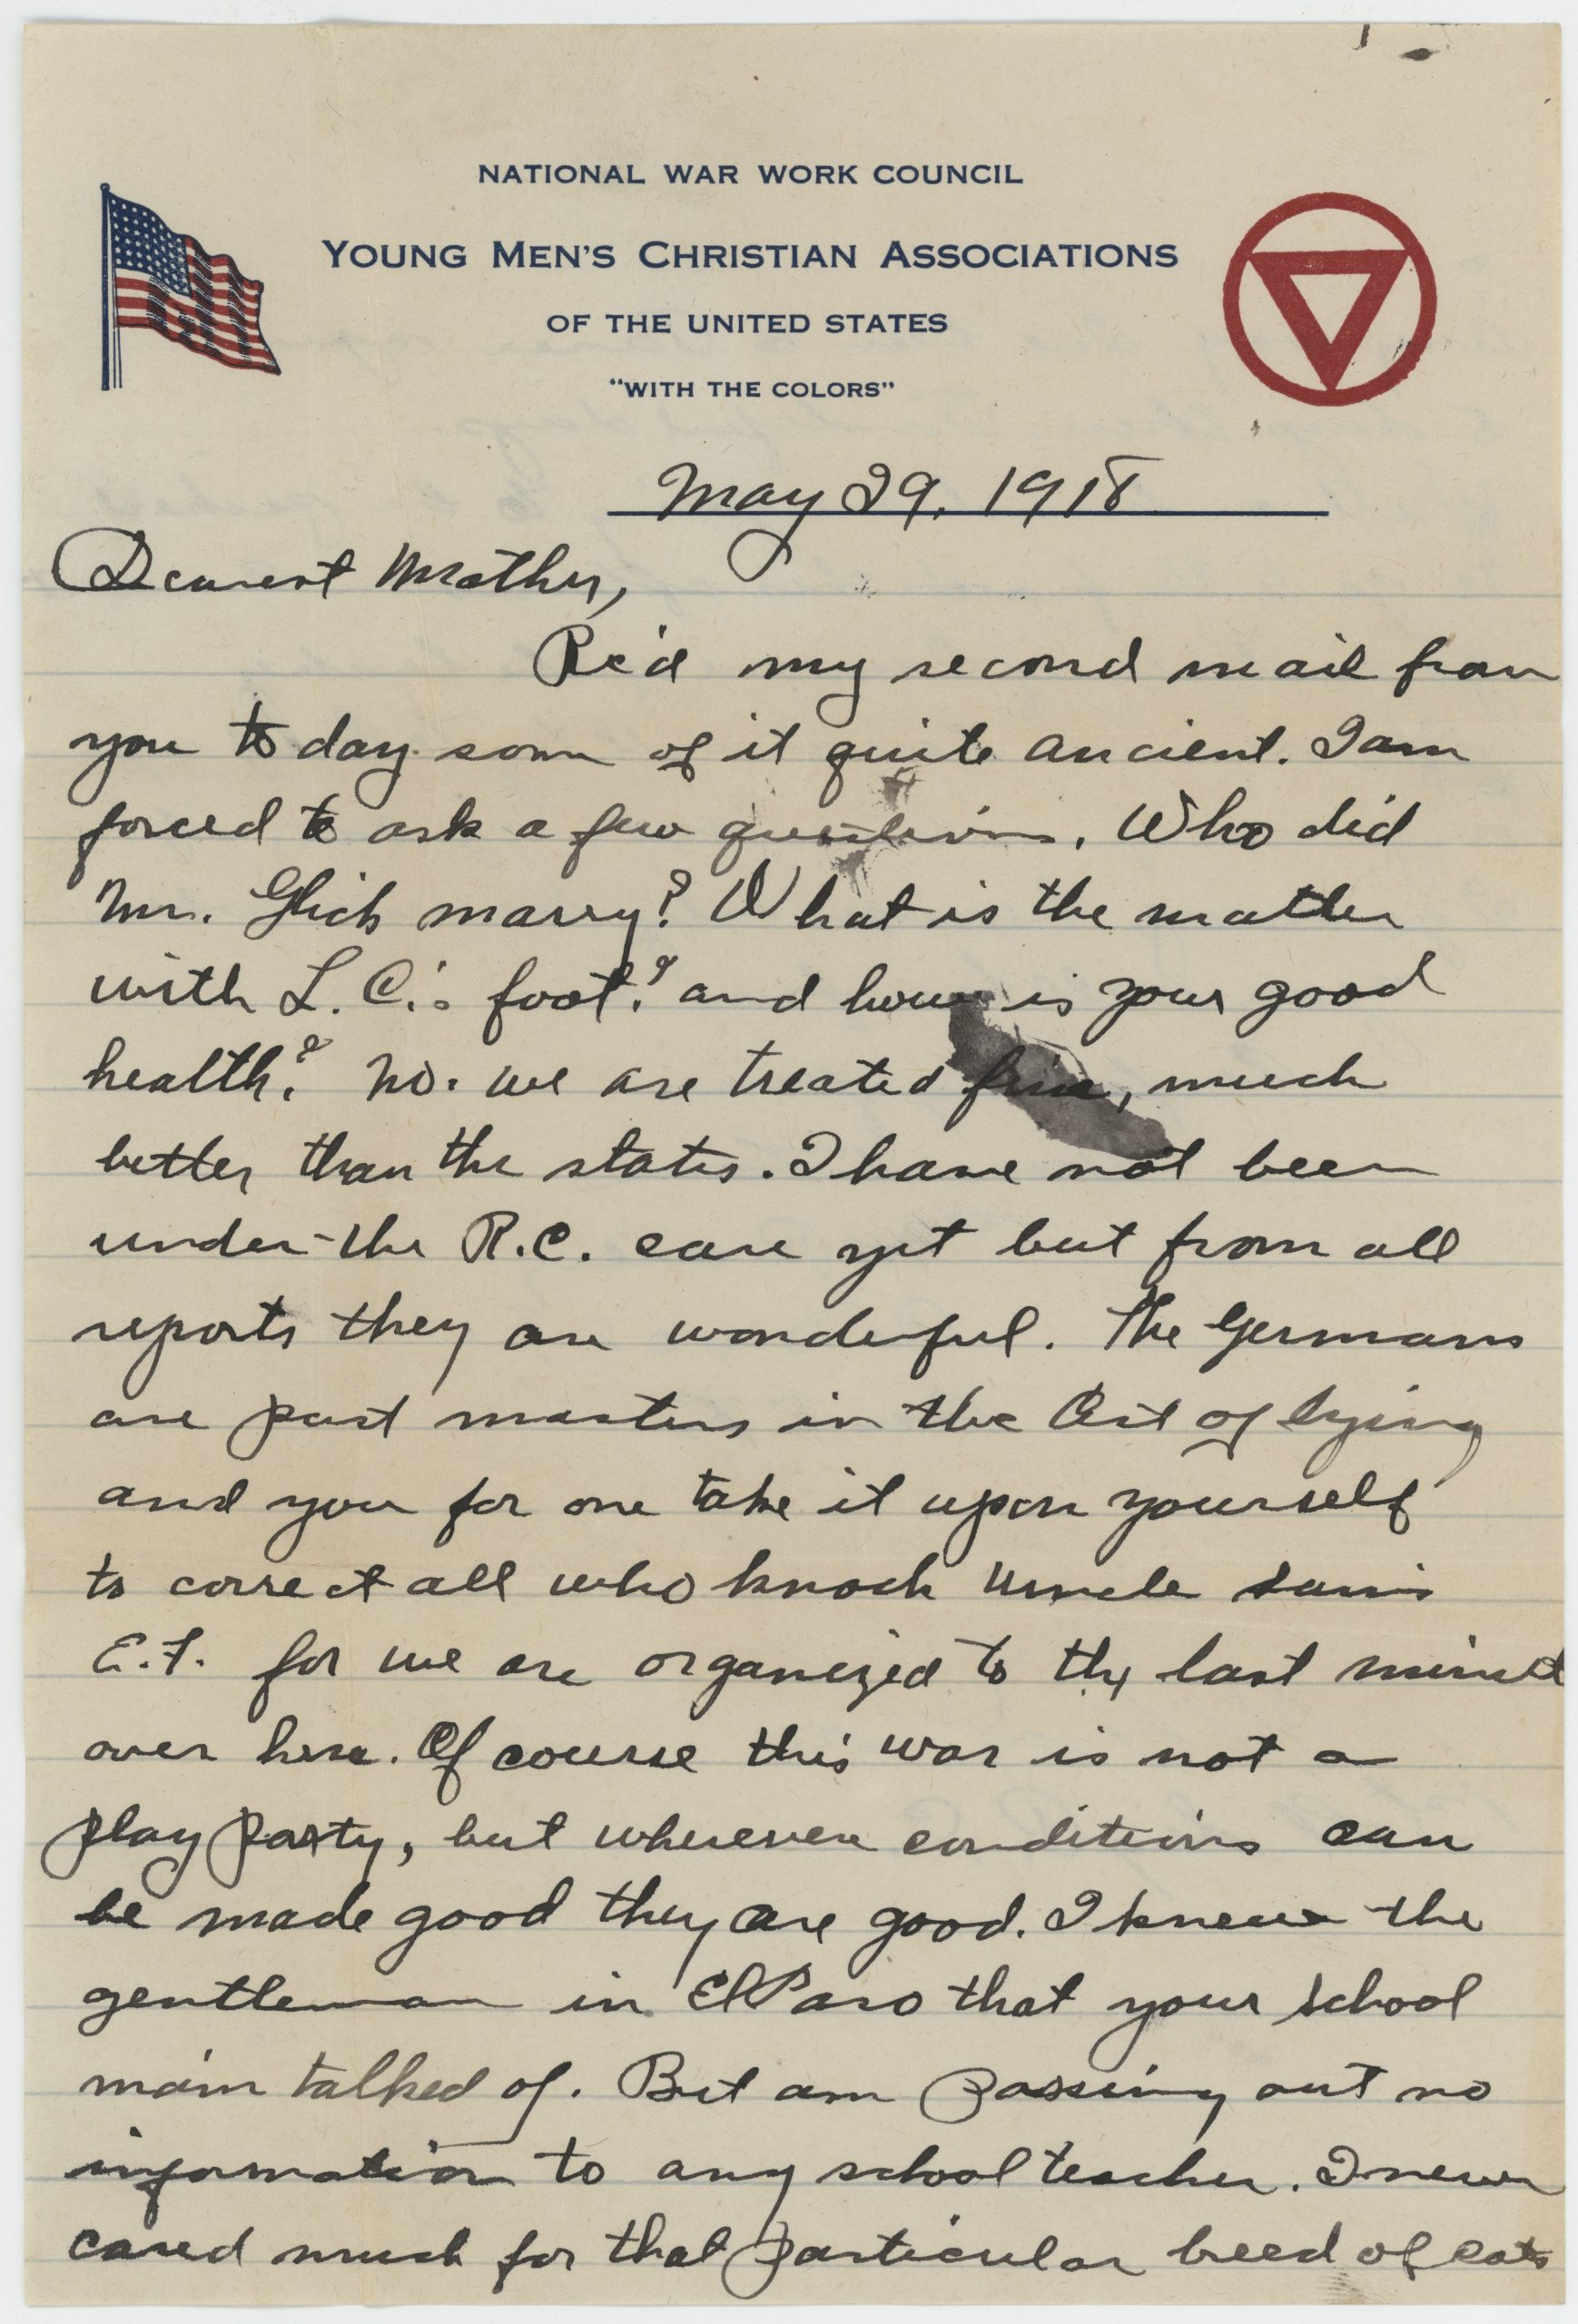 NATIONAL WAR WORK COUNCIL
YOUNG MEN'S CHRISTIAN ASSOCIATIONS
OF THE UNITED STATES
"WITH THE COLORS"
May 29, 1918
Dearest Mother,
Rec'd my second mail from
you to day some of it quite ancient. I am
forced to ask a few questions. Who did
Mr. Glick marry? What is the matter
with L. C.'s foot? and how is your good
health? No. we are treated fine, much
better than the states. I have not been
under the R.C. care yet but from all
reports they are wonderful. The Germans
are past masters in the Art of lying
and you for one take it upon yourself
to correct all who knock Uncle Sam's
E.F. for we are organized to the last minute
over here. Of course this war is not a
play party, but wherever conditions can
be made good they are good. I knew the
gentleman in El Paso that your school
mam talked of. But am passing out no
information to any school teacher. I never
cared much for that particular breed of cats